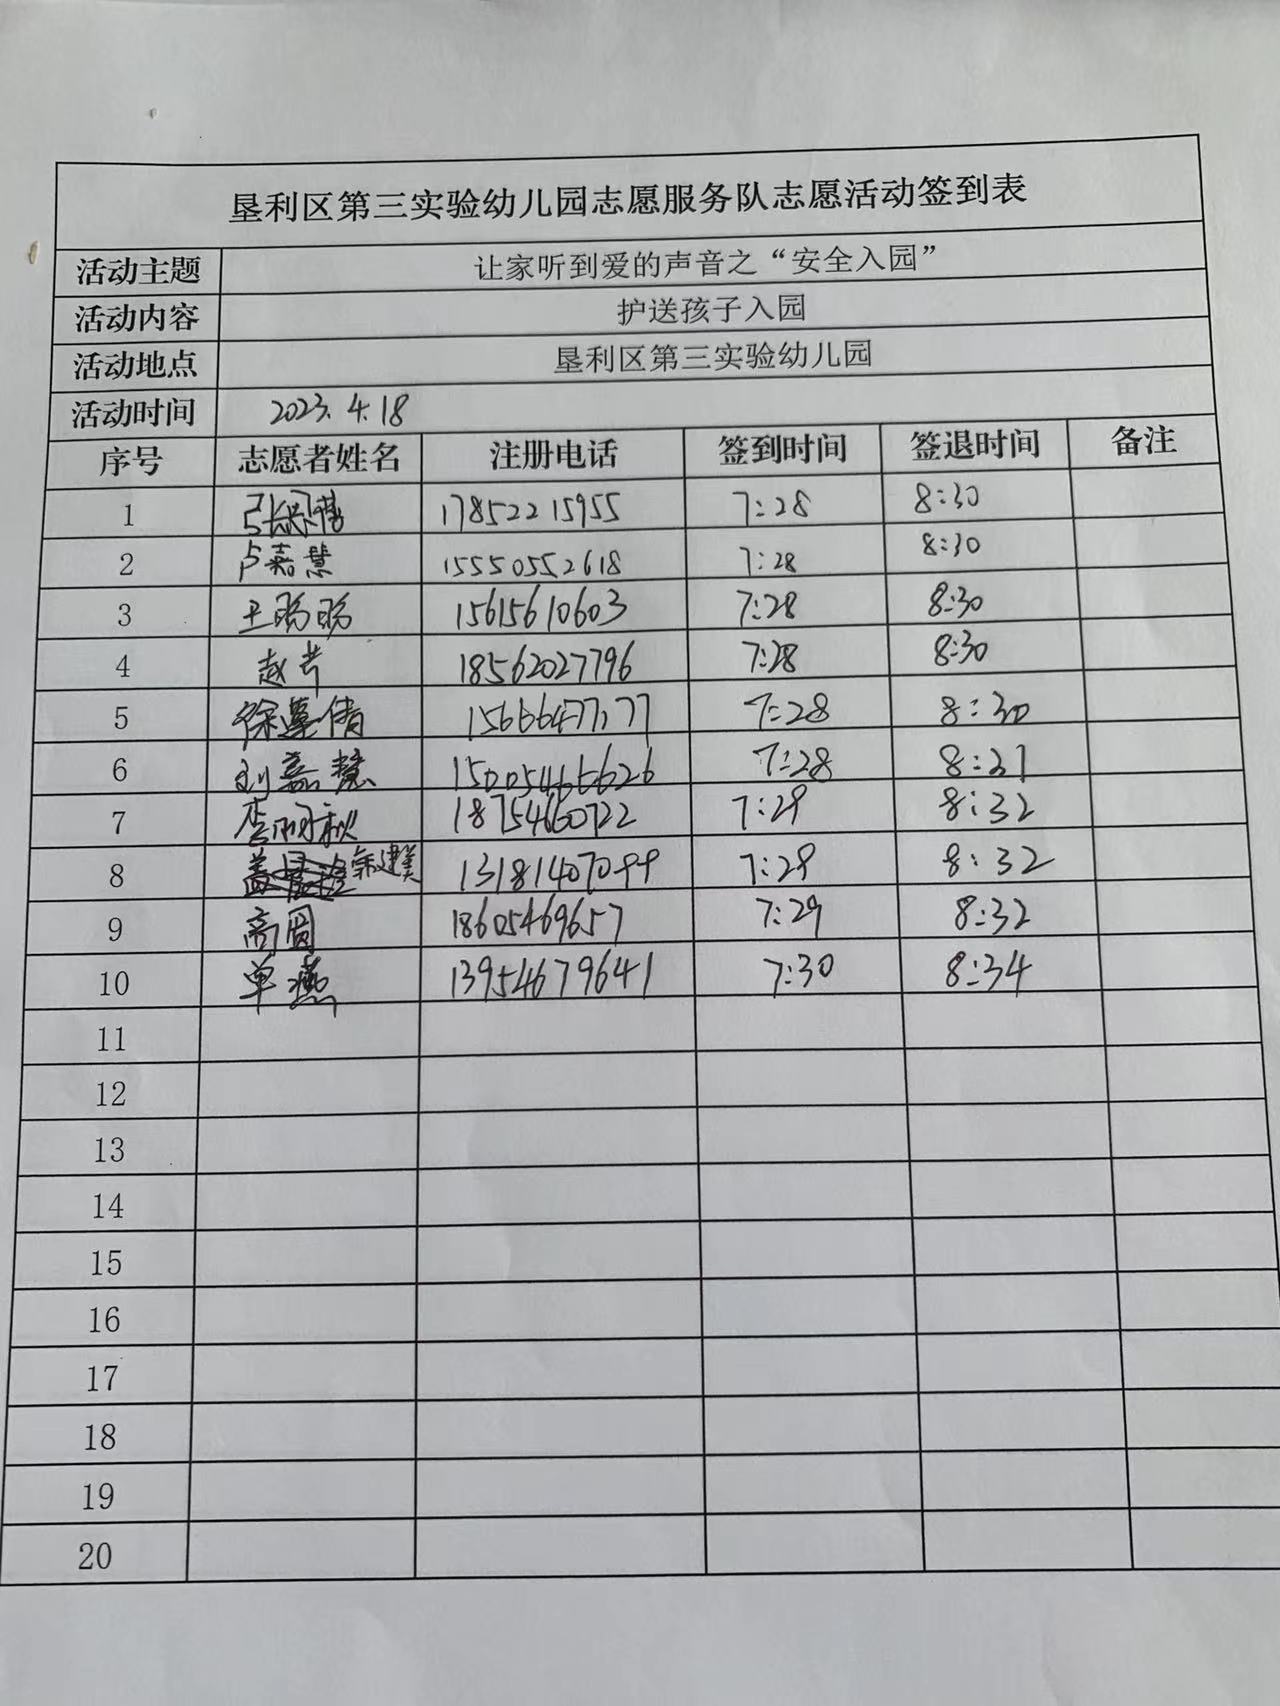 垦利区第三实验幼儿园志愿服务队志愿活动签到表
活动主题 让家听到爱的声音之“安全入园”
活动内容 护送孩子入园
活动地点 垦利区第三实验幼儿园
活动时间 2023.4.18
序号 志愿者姓名 注册电话 签到时间 签退时间 备注
1 17852215955 7:28 8:30
2 卢嘉慧 15550552618 7:28 8:30
3 王聪聪 15615610603 7:28 8:30
4 赵芳 18562027796 7:28 8:30
5 7:28 8:30
6 刘嘉慧 7:28 8:31
7 李丽秋 18754660722 7:29 8:32
8 13181407099 7:29 8:32
9 商圆 18605469657 7:29 8:32
10 单燕 13954679641 7:30 8:34
11
12
13
14
15
16
17
18
19
20